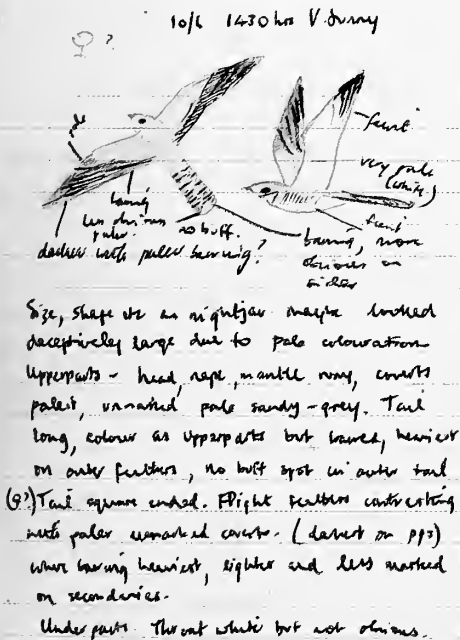 10/6 1430 hrs V. Sunny
♀ ?
pale
faint
very pale
(white)
barring
less obvious
paler
no buff.
faint
darker with paler barring?
barring, more
obvious on
Size, shape etc as nightjar maybe looked
deceptively large due to pale colouration
Upperparts - head, nape, mantle, coverts
palest, unmarked pale sandy-grey. Tail
long, colour as upperparts but barred, heaviest
on outer feathers, no buff spot in outer tail
(♀?) Tail square ended. Flight feathers contrasting
with paler unmarked coverts. (darkest on pps)
where barring heaviest, lighter and less marked
on secondaries.
Underparts. Throat white but not obvious.